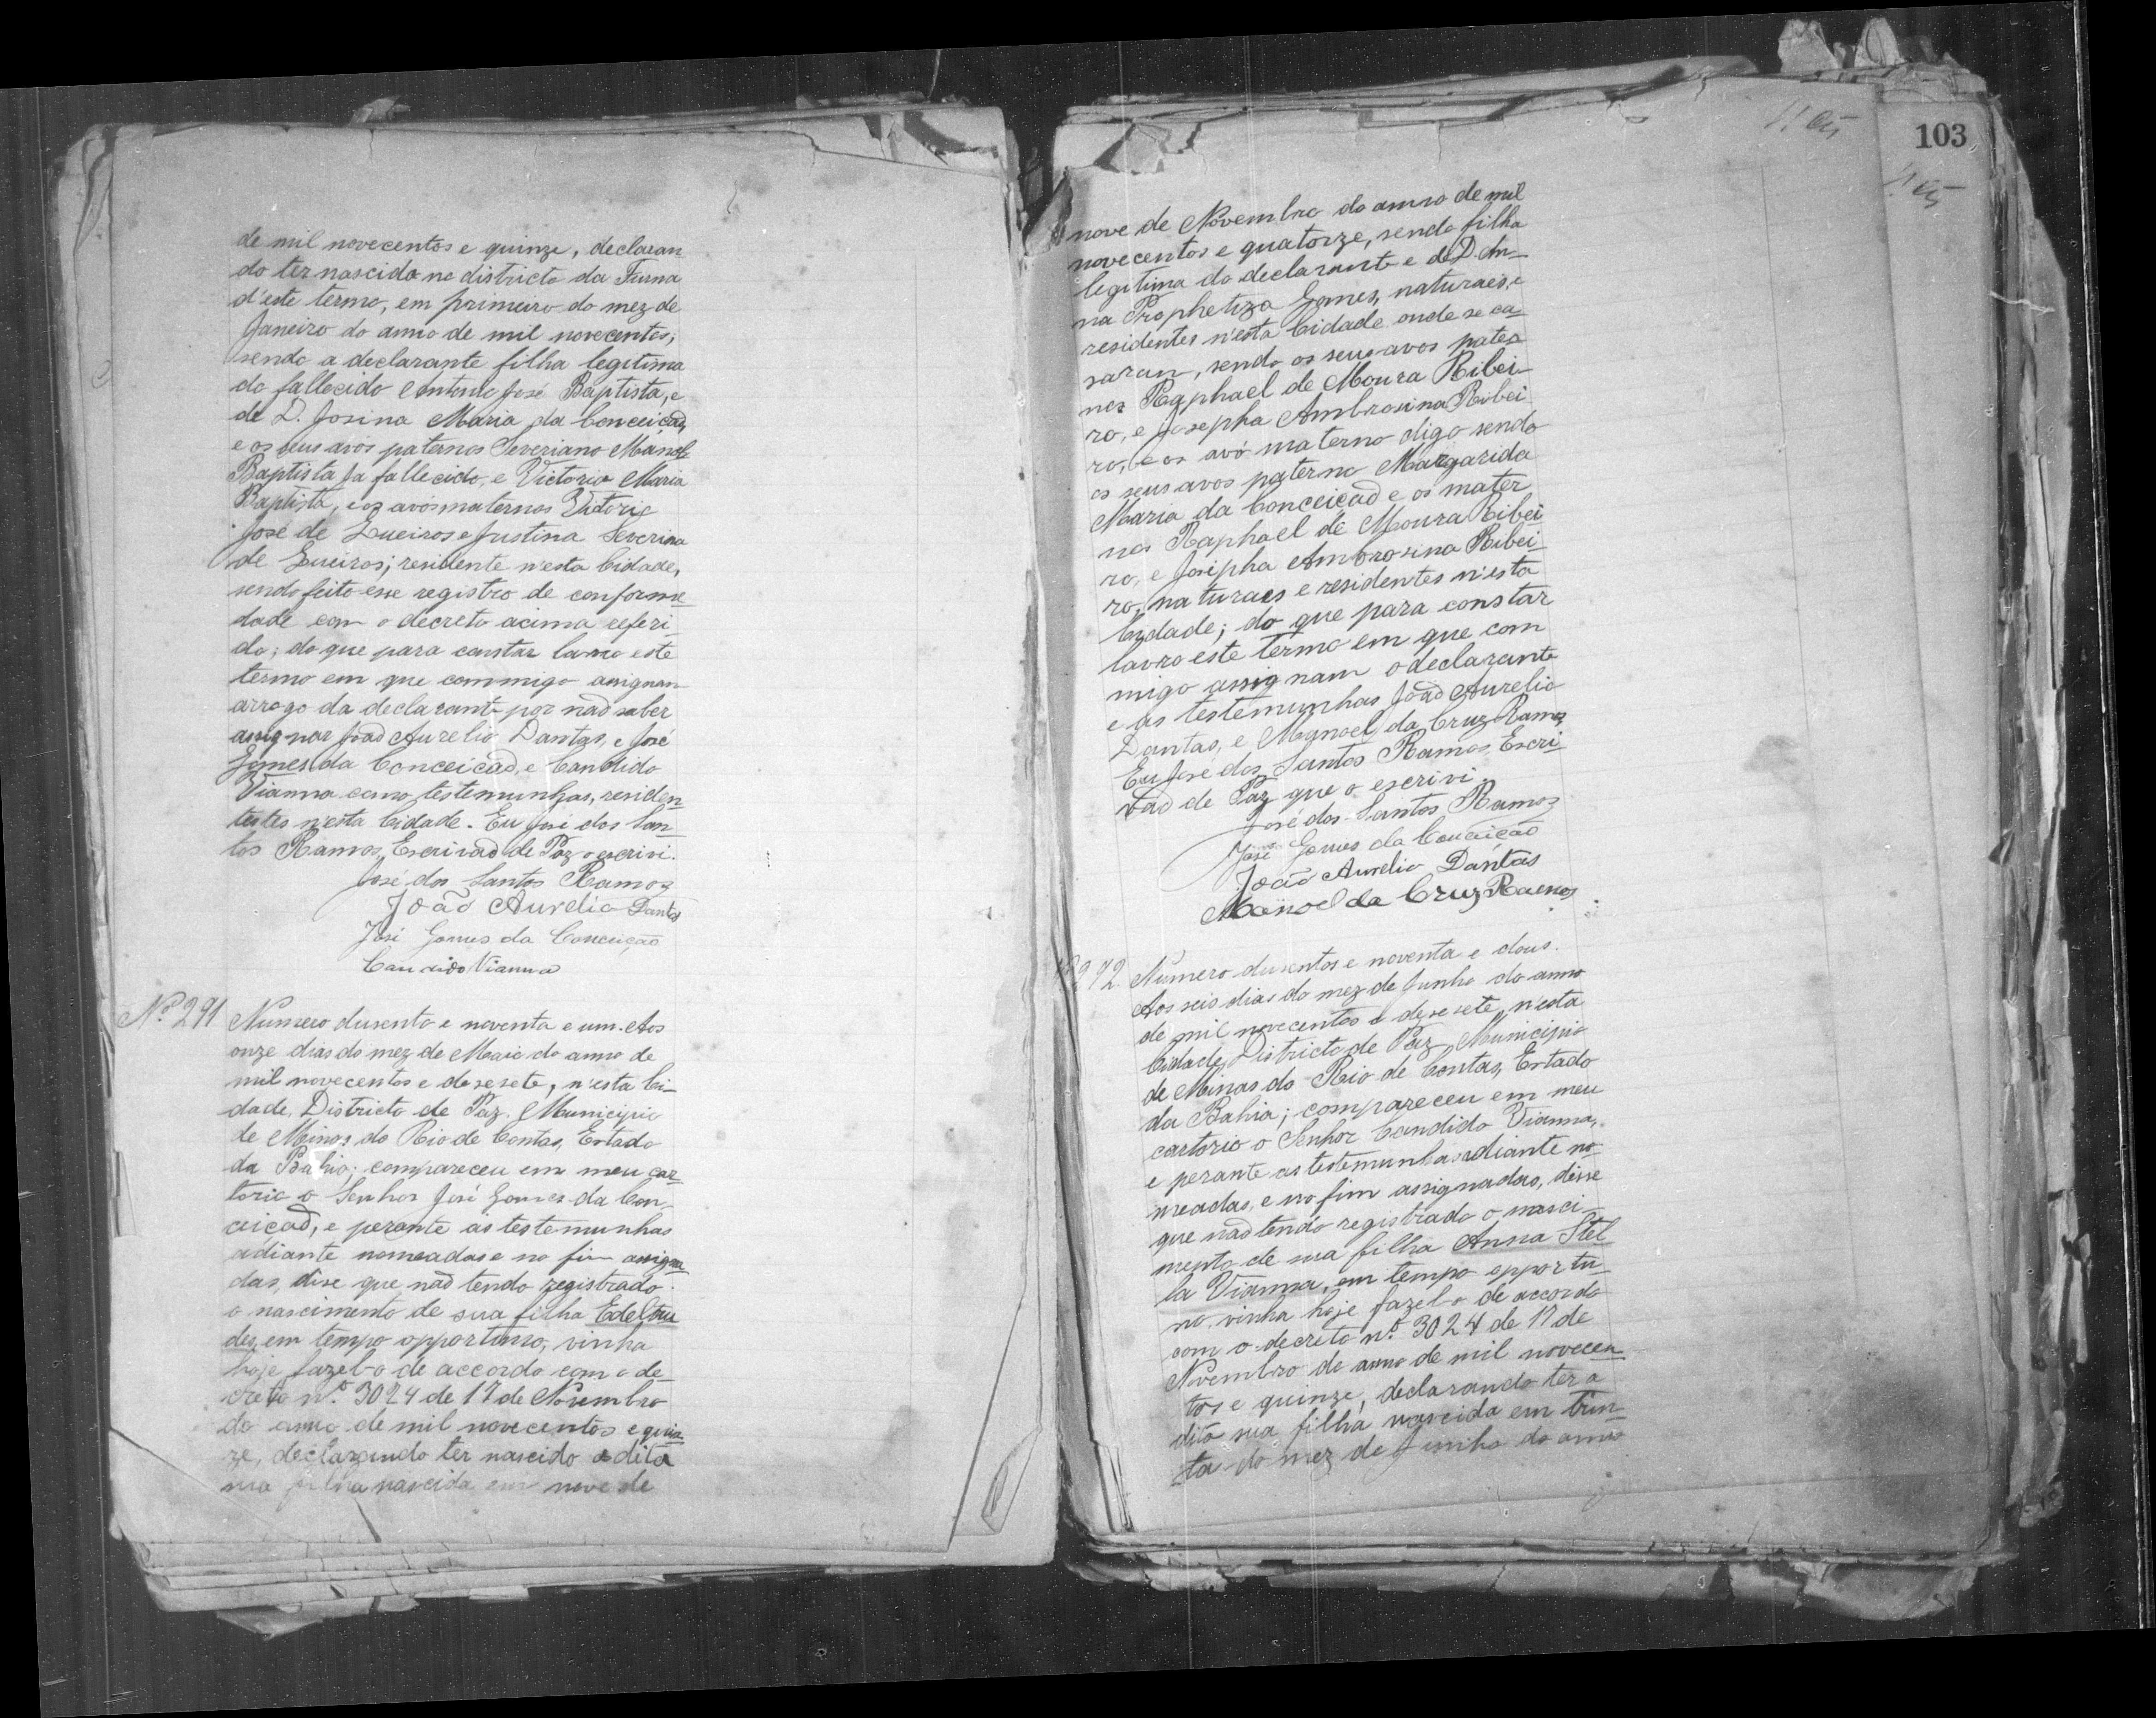 de mil novecentos e quinze, declaran
do ter nascido no districto da Furna
d'este termo, em primeiro do mez de
Janeiro do anno de mil novecentos;
sendo a declarante filha legitima
do fallecido Antonio José Baptista, e
de D. Josina Maria da Conceicaõ,
e os seus avós paternos Severiano Manoel
Baptista ja fallecido, e Victoria Maria
Baptista, e os avós maternos Victorio
José de Queiros e Justina Severina
de Queiros; residente n'esta Cidade,
sendo feito esse registro de conforme
dade com o decreto acima referi
do; do que para constar lavro este
termo em que commigo assignam
arrogo da declarante por naõ saber
assignar Joaõ Aurelio Dantas, e José
Gomes da Conceicaõ, e Candido
Vianna como testemunhas, residen
testes n'esta Cidade. Eu José dos San
tos Ramos, Escrivaõ de Paz o escrivi.
José dos Santos Ramos
João Aurelio Dantas
José Gomes da Conceição
Candido Vianna
Nº 291
Numero dusento e noventa e um. Aos
onze dias do mez de Maio do anno de
mil novecentos e desesete, n'esta Ci
dade, Districto de Paz, Municipio
de Minas do Rio de Contas, Estado
da Bahia; compareceu em meu car
torio o Senhor José Gomes da Con
ceicaõ, e perante as testemunhas
adiante nomeadas e no fim assigna
das, disse que naõ tendo registrado
o nascimento de sua filha Edeltru
des, em tempo opportuno, vinha
hoje fazel-o de accordo com o de
creto nº 3024 de 17 de Novembro
do anno de mil novecentos e quin
ze, declarando ter nascido a dita
sua filha nascida em nove de
103
nove de Novembro do anno de mil
novecentos e quatorze, sendo filha
legitima do declarante e de D. An
na Prophetiza Gomes, naturaes, e
residentes n'esta Cidade onde se ca
saram, sendo os seus avos pater
nos Raphael de Moura Ribei
ro, e Josepha Ambrosina Ribei
ro, e os avó materno digo sendo
os seus avos paterno Margarida
Maria da Conceicaõ e os mater
nos Raphael de Moura Ribei
ro, e Josipha Ambrosina Ribei
ro, naturaes e residentes n'esta
Cidade; do que para constar
lavro este termo em que com
migo assignam o declarante
e as testemunhas Joaõ Aurelio
Dantas, e Manoel da Cruz Ramos
Eu José dos Santos Ramos, Escri
vaõ de Paz que o escrivi.
José dos Santos Ramos
José Gomes da Conceição
João Aurelio Dantas
Manoel da Cruz Ramos
292. Numero dusentos e noventa e dous.
Aos seis dias do mez de Junho do anno
de mil novecentos e desesete, n'esta
Cidade, Districto de Paz, Municipio
de Minas do Rio de Contas, Estado
da Bahia; compareceu em meu
cartorio o Senhor Candido Vianna,
e perante as testemunhas adiante no
meadas, e no fim assignadas, disse
que naõ tendo registrado o nasci
mento de sua filha Anna Stel
la Vianna, em tempo opportu
no, vinha hoje fazel-o de accordo
com o decreto nº 3024 de 17 de
Novembro do anno de mil novecen
tos e quinze, declarando ter a
dita sua filha nascida em trin
ta do mez de Junho do anno